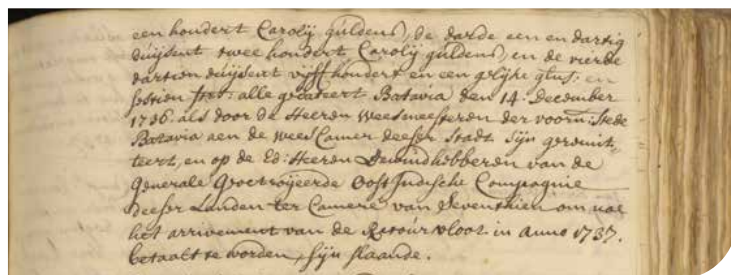 een hondert Carolij guldens, de darde een en dartig
duijsent twee hondert Carolij guldens, en de vierde
dartien duijsent vijff hondert en een gelijke glus: en
sestien str: alle gedateert Batavia den 14. December
1736. als door de Heeren Weesmeesteren der voorn: Stede
Batavia aen de WeesCamer deeser Stadt sijn geremit„
teert, en op de Ed: Heeren Bewindhebberen van de
Generale Geoctroijeerde OostIndische Compagnie
deeser Landen ter Camere van Seventhien om nae
het arrivement van de Retourvloot in anno 1737.
betaalt te worden, sijn slaande.